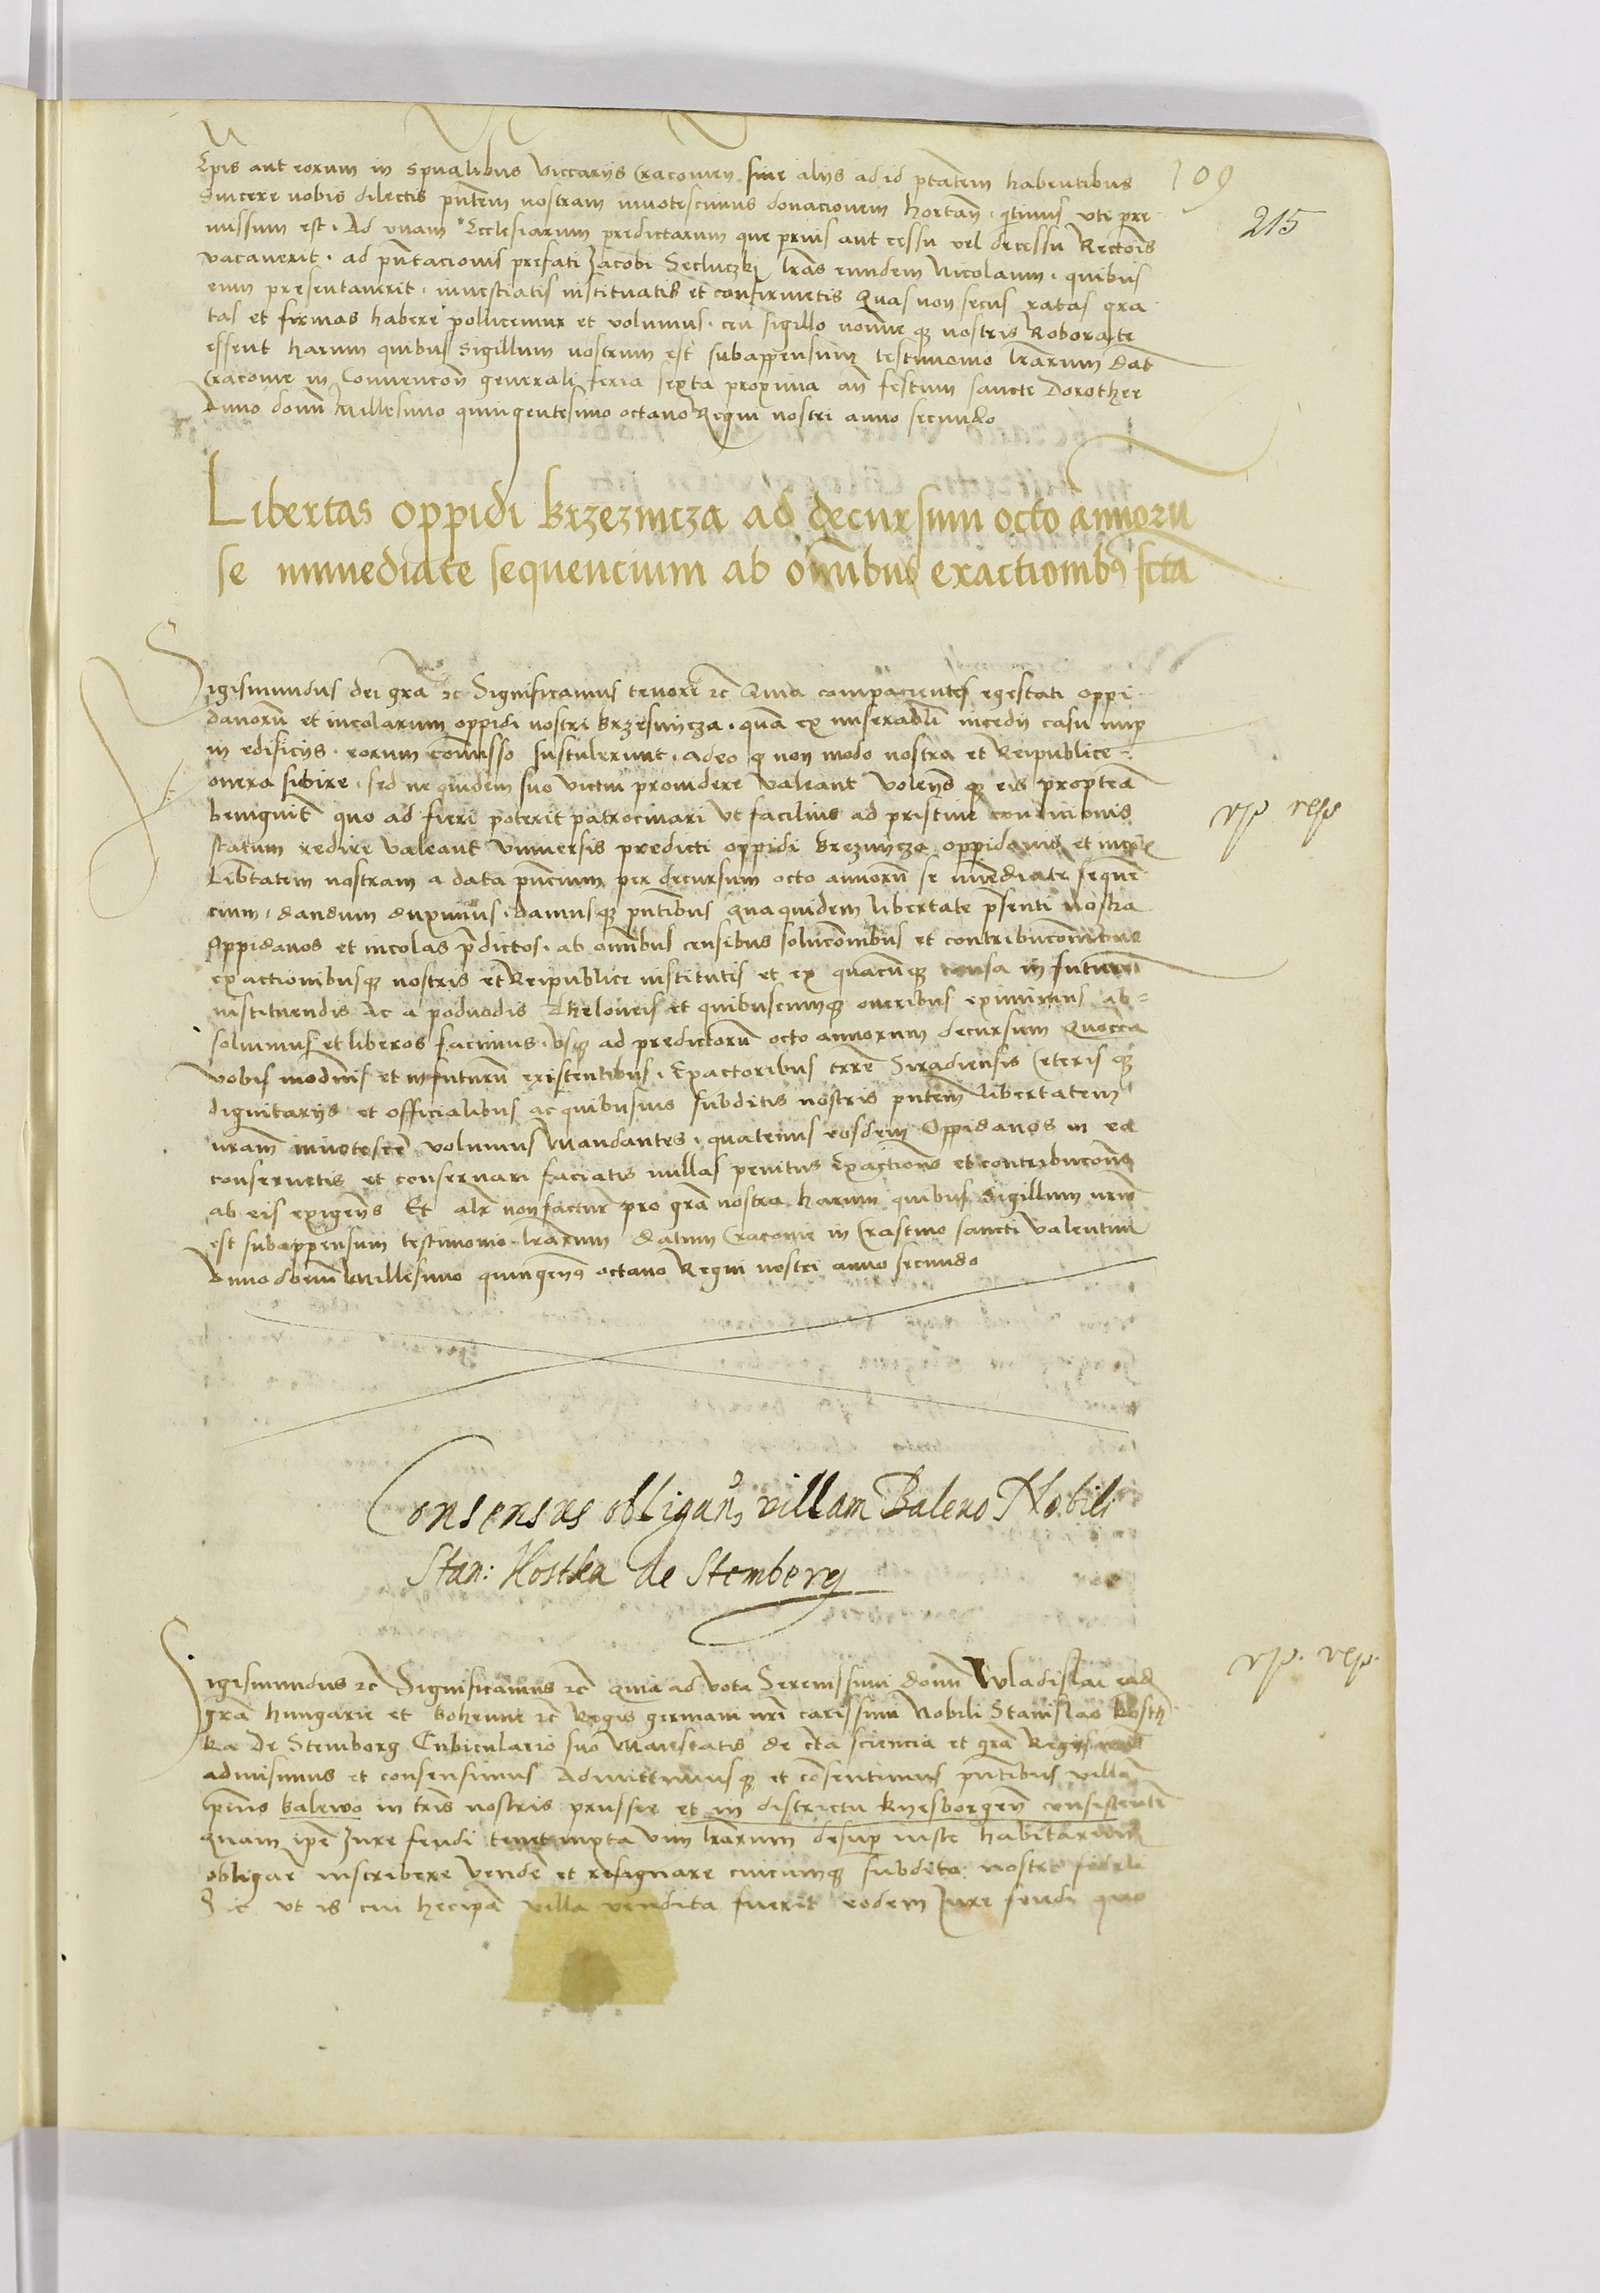 Epis aut eorum in spualibus viccariis Cracovien sive aliis ad id ptatem habentibus
109
Sincere nobis dilectis pntem nostram innotescimus donacionem hortan qtinus uti pre
215
missum est. Ad unam Ecclesiarum predictarum que prius aut cessu vel decessu Rectoris
vacaverit. ad pntacionis prefati Jacobi Secluczki lras eundem Nicolaum. quibus
eum presentaverit. investiatis instituatis et confirmetis Quas non secus ratas gra
tas et firmas habere pollicemur et volumus. ceu sigillo nomine qz nostris Roborate
essent harum quibus Sigillum nostrum est subappensum testimonio lrarum Dat
Cracovie in Convencon generali feria sexta proxima an festum sancte Dorothee
Anno domi Millesimo quingentesimo octavo Regni nostri anno secundo
Libertas oppidi Brzeznicza ad decursum octo annoru
se immediate sequencium ab omnibus exactionibus scta
Sigismundus dei gra etc Significamus tenore etc Quia compacientes egestati oppi
danoru et incolarum oppidi nostri Brzesnycza. qua ex miserabili incedii casu nup
in edificiis. eorum comisso sustulerunt. adeo q non modo nostra et Reipublice
onera subire. sed ne quidem suo victui providere valeant volend qz eis proptea
benignit quo ad fieri poterit patrocinari ut facilius ad pristine condicionis
rp resp
statum redire valeant Universis predicti oppidi Brezincza oppidanis et incol
Libtatem nostram a data pncium per decursum octo annoru se immediate sequen
cium. dandam duximus. damusqz pntibus Qua quidem libertate psenti nostra
Oppidanos et incolas pdictos. ab omibus censibus solucoibus et contribucoibus
exactionibusqz nostris et Reipublice institutis et ex quacunqz causa in futurum
instituendis Ac a podvodis Theloneis et quibuscumqz oneribus eximimus ab=
solvimus et liberos facimus. usqz ad predictoru octo annorum decursum Quocca
vobis modnis et in futuru existentibus. Exactoribus terre Siradiensis Ceteris qz
dignitariis et officialibus ac quibusvis subditis nostris pntem libertatem
nram innotesce volumus Mandantes. quatenus eosdem Oppidanos in ea
conservetis et conservari faciatis nullas penitus Exactions et contribucons
ab eis exigens Et alr non factur pro gra nostra harum quibus Sigillum nrm
est subappensum testimonio lrarum Datum Cracovie in Crastino sancti Valentini
Anno domi Millesimo quingens octavo Regni nostri anno secundo
Consensus obligan villam Baleno Nobili
Stan: Kostka de Stemberg
Sigismundus etc Significamus etc Quia ad vota Serenissimi domi Wladislai ead
rp. resp.
gra Hungarie et Bohemie etc Regis germani nri carissimi Nobili Stanislao Kosth
ka de Stemborg Cubiculario suo Maiestatis de cta sciencia et gra
admisimus et consensimus Admittimusqz et consentimus pntibus villa
ipius Balewo in tris nostris prussie et in districtu Kyesborgen consistente
Quam ipe Jure feudi tenet iuxta vim lrarum desup iuste habitarum
obligar inscribere vende et resignare cuicumqz subdito nostro fideli
Sic ut is cui hec ipa villa vendita fuerit eodem Jure feudi quo